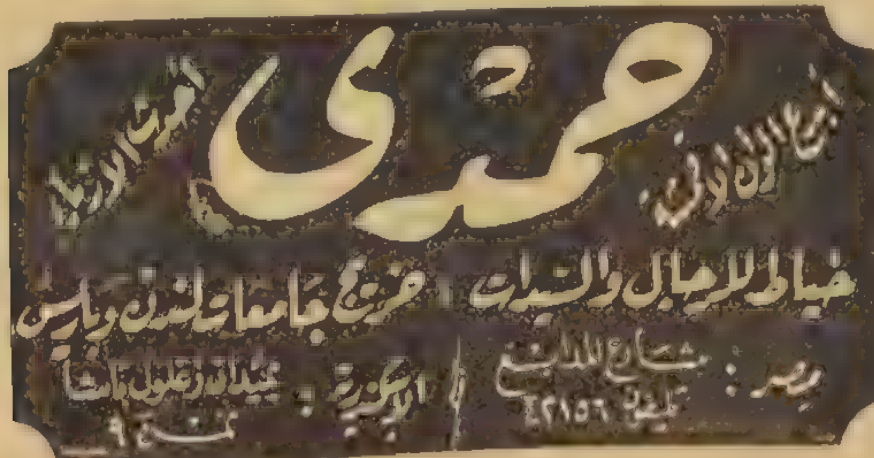 حمدى
أبدع الألوان الإفرنجية
أحدث الأزياء
خياط للرجال والسيدات خريج جامعات لندن وباريس
مصر : شارع المدابغ
تليفون ٤٢١٥٦
الإسكندرية : بميدان زغلول باشا
نمرة ٩